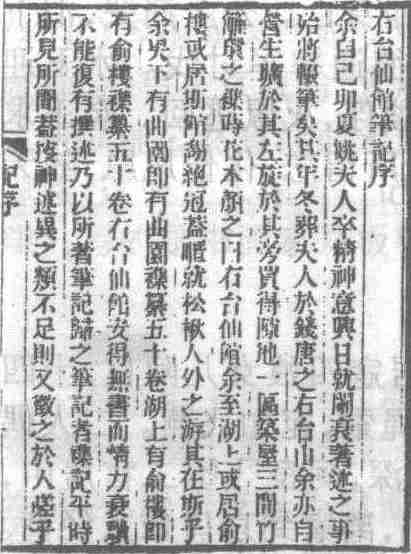 右台仙館筆記序
余自己卯夏姚夫人卒精神意興日就闌衰著述之事
殆將輟筆矣其年冬葬夫人於錢唐之右台山余亦自
營生壙於其左旋於其旁買得隙地一區築屋三間竹
籬環之襍蒔花木顏之曰右台仙館余至湖上或居俞
樓或居斯館謝絕冠蓋暱就松楸人外之游其在斯乎
余吳下有曲園卽有曲園襍纂五十卷湖上有俞樓卽
有俞樓襍纂五十卷右台仙館安得無書而精力衰頹
不能復有撰述乃以所著筆記歸之筆記者襍記平時
所見所聞蓋搜神述異之類不足則又徵之於人嗟乎
記序